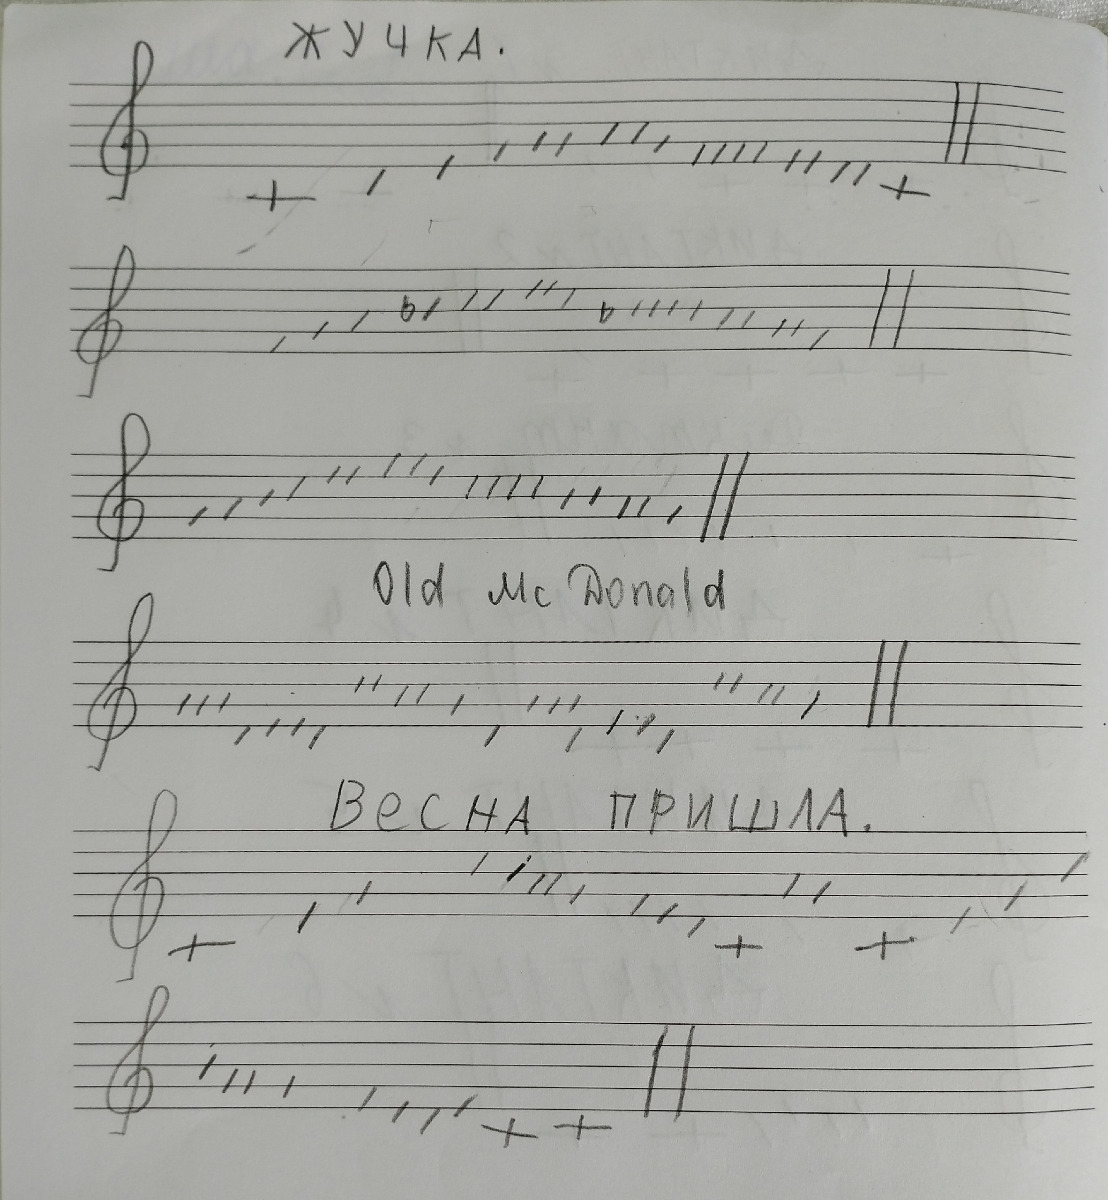 ЖУЧКА.
Old Mc Donald
ВЕСНА ПРИШЛА.